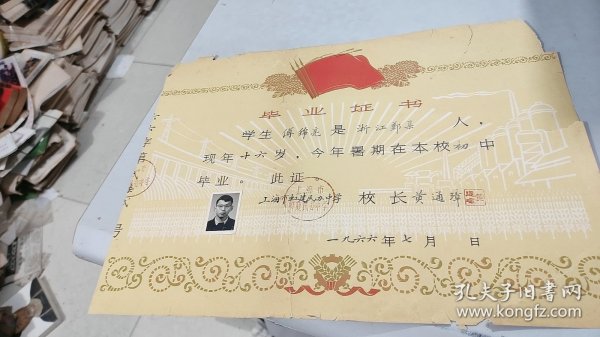 毕业证书
学生 是 浙江鄞县 人，
现年十六岁，今年暑期在本校初中
毕业。此证
上海市虹建民办中学 校长黄通璋
一九六六年七月 日
孔夫子旧书网
www.kongfz.com